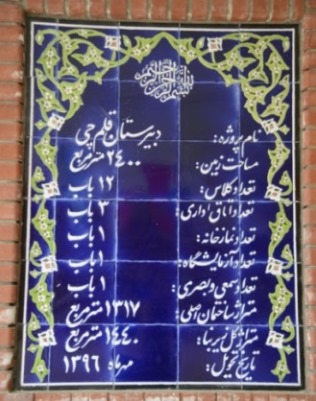 بسم الله الرحمن الرحیم
نام پروژه: دبیرستان قلم چی
مساحت زمین: ۲۴۰۰ متر مربع
تعداد کلاس: ۱۲ باب
تعداد اتاق اداری: ۳ باب
تعداد نمازخانه: ۱ باب
تعداد آزمایشگاه: ۱ باب
تعداد سمعی و بصری: ۱ باب
متراژ ساختمان اصلی: ۱۳۱۷ متر مربع
متراژ کل زیربنا: ۱۴۴۰ متر مربع
تاریخ تحویل: مهرماه ۱۳۹۶